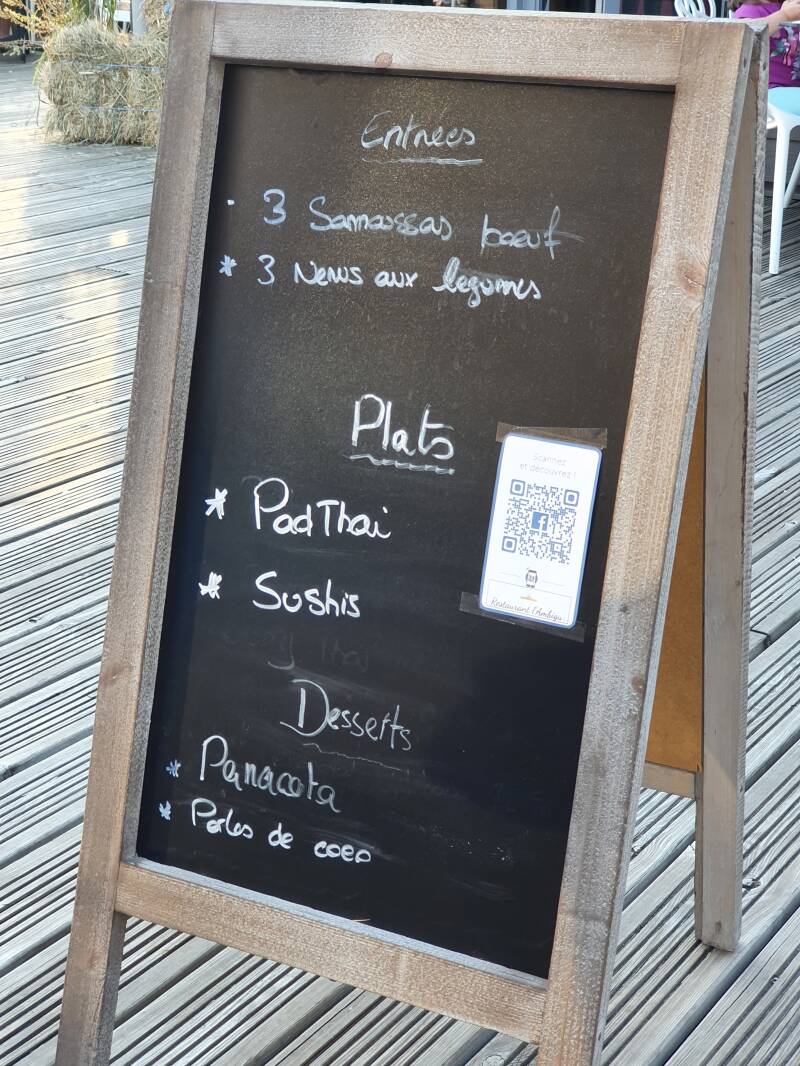 Entrées
· 3 Samoussas boeuf
* 3 Nems aux légumes
Plats
* Pad Thai
* Sushis
Scannez
et découvrez !
Restaurant l'Ambigu
Desserts
* Panacota
* Perles de coco